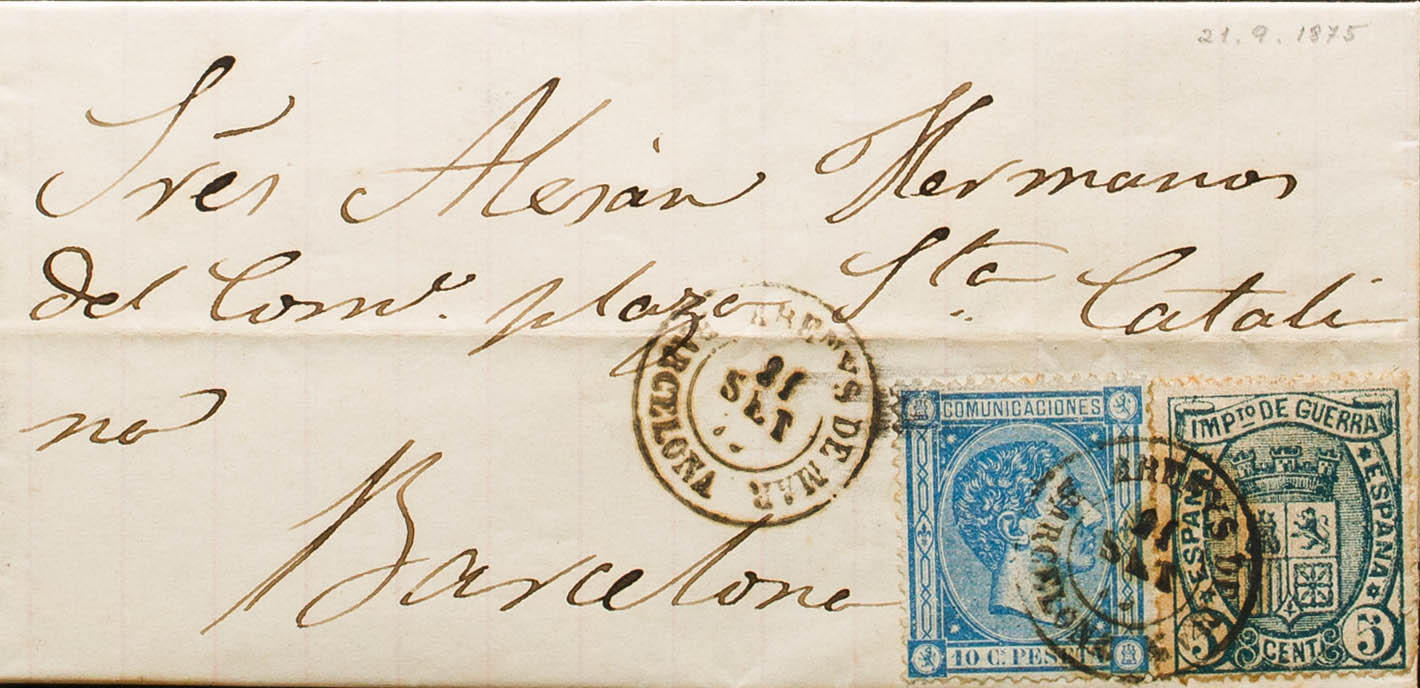 21.9.1875
Srés Alesán Hermanos
del Comº. plaza Sta. Catali
na
Barcelona
ARENYS DE MAR
BARCELONA
21
SET
COMUNICACIONES
10 Cs. PESETA
IMPTO DE GUERRA
ESPAÑA
ESPAÑA
5 CENT. 5
ARENYS DE MAR
BARCELONA
21
SET